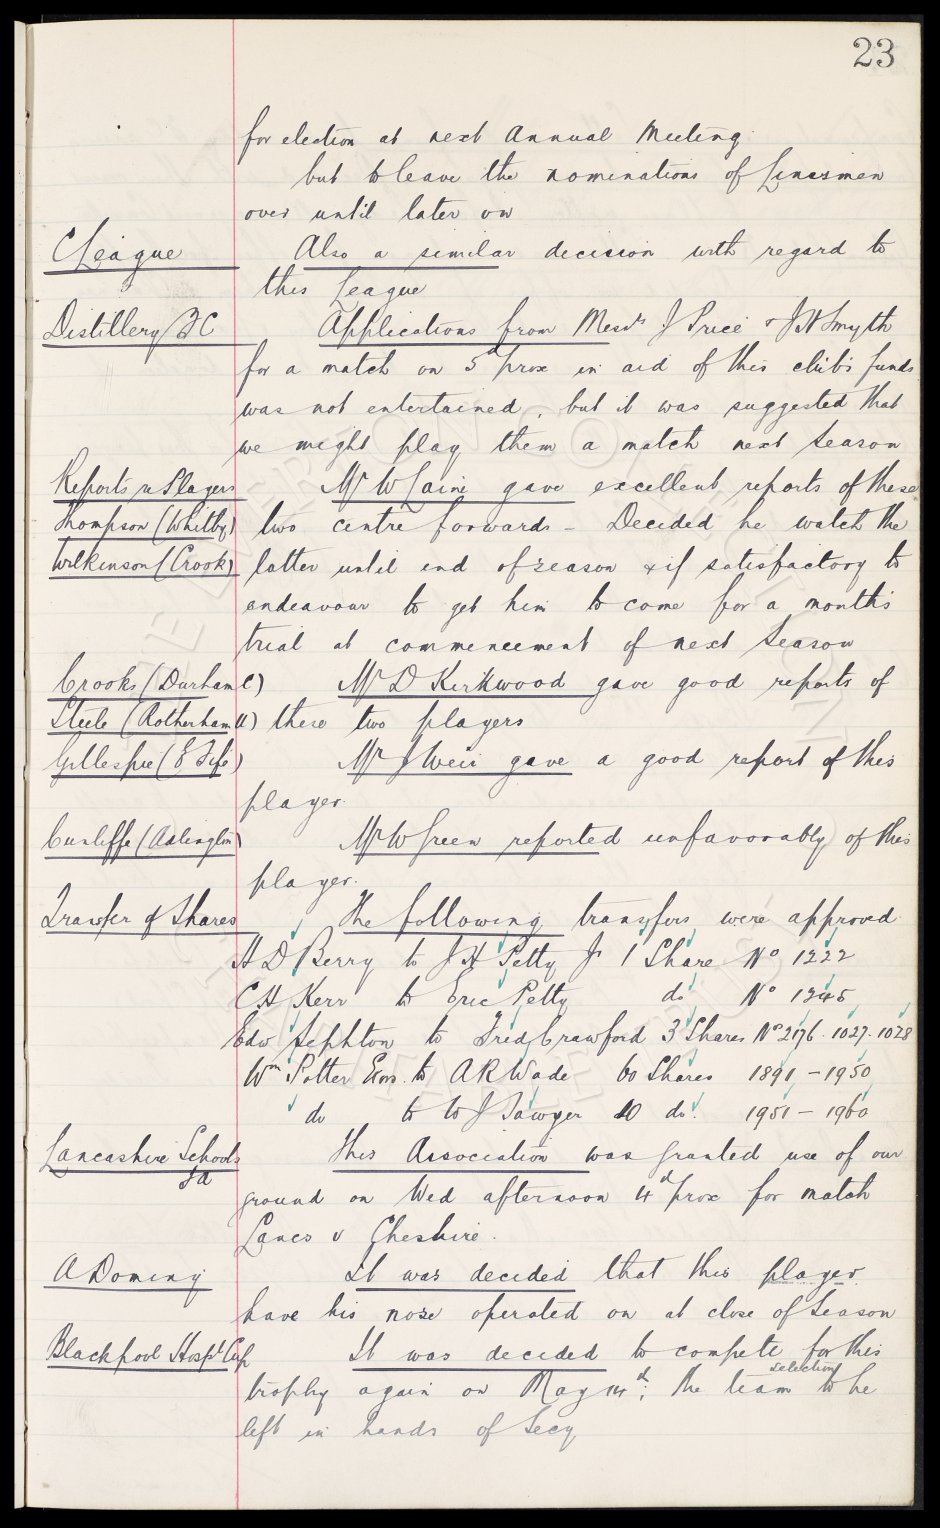 23
for election at next Annual Meeting
but to leave the nominations of Linesmen
over until later on
C League Also a similar decision with regard to
this League
Distillery FC Applications from Messrs J Price & J H Smyth
for a match on 5th prox in aid of this club's funds
was not entertained, but it was suggested that
we might play them a match next season
Reports re Players Mr W Laine gave excellent reports of these
Thompson (Whitby) two centre forwards - Decided he watch the
Wilkinson (Crook) latter until end of season & if satisfactory to
endeavour to get him to come for a month's
trial at commencement of next Season
Crooks (Durham C) Mr D Kirkwood gave good reports of
Steele (Rotherham U) these two players
Gillespie (E Fife) Mr J Weir gave a good report of this
player.
Cunliffe (Adlington) Mr W Green reported unfavorably of this
player.
Transfer of Shares The following transfers were approved
H D Berry to J H Petty Jr 1 Share No 1222
C H Kerr to Eric Petty do No 1245
Edw Sephton to Fred Crawford 3 Shares No 2176 . 1027 . 1028
Wm Potter Exors. to A R Wade 60 Shares 1891 - 1950
do to W J Sawyer 10 do. 1951 - 1960
Lancashire Schools This Association was granted use of our
FA
ground on Wed afternoon 4th prox for match
Lancs v Cheshire.
A Doming It was decided that this player
have his nose operated on at close of Season
Blackpool Hospl Cup It was decided to compete for this
selection
trophy again on May 14th; the team to be
left in hands of Secy